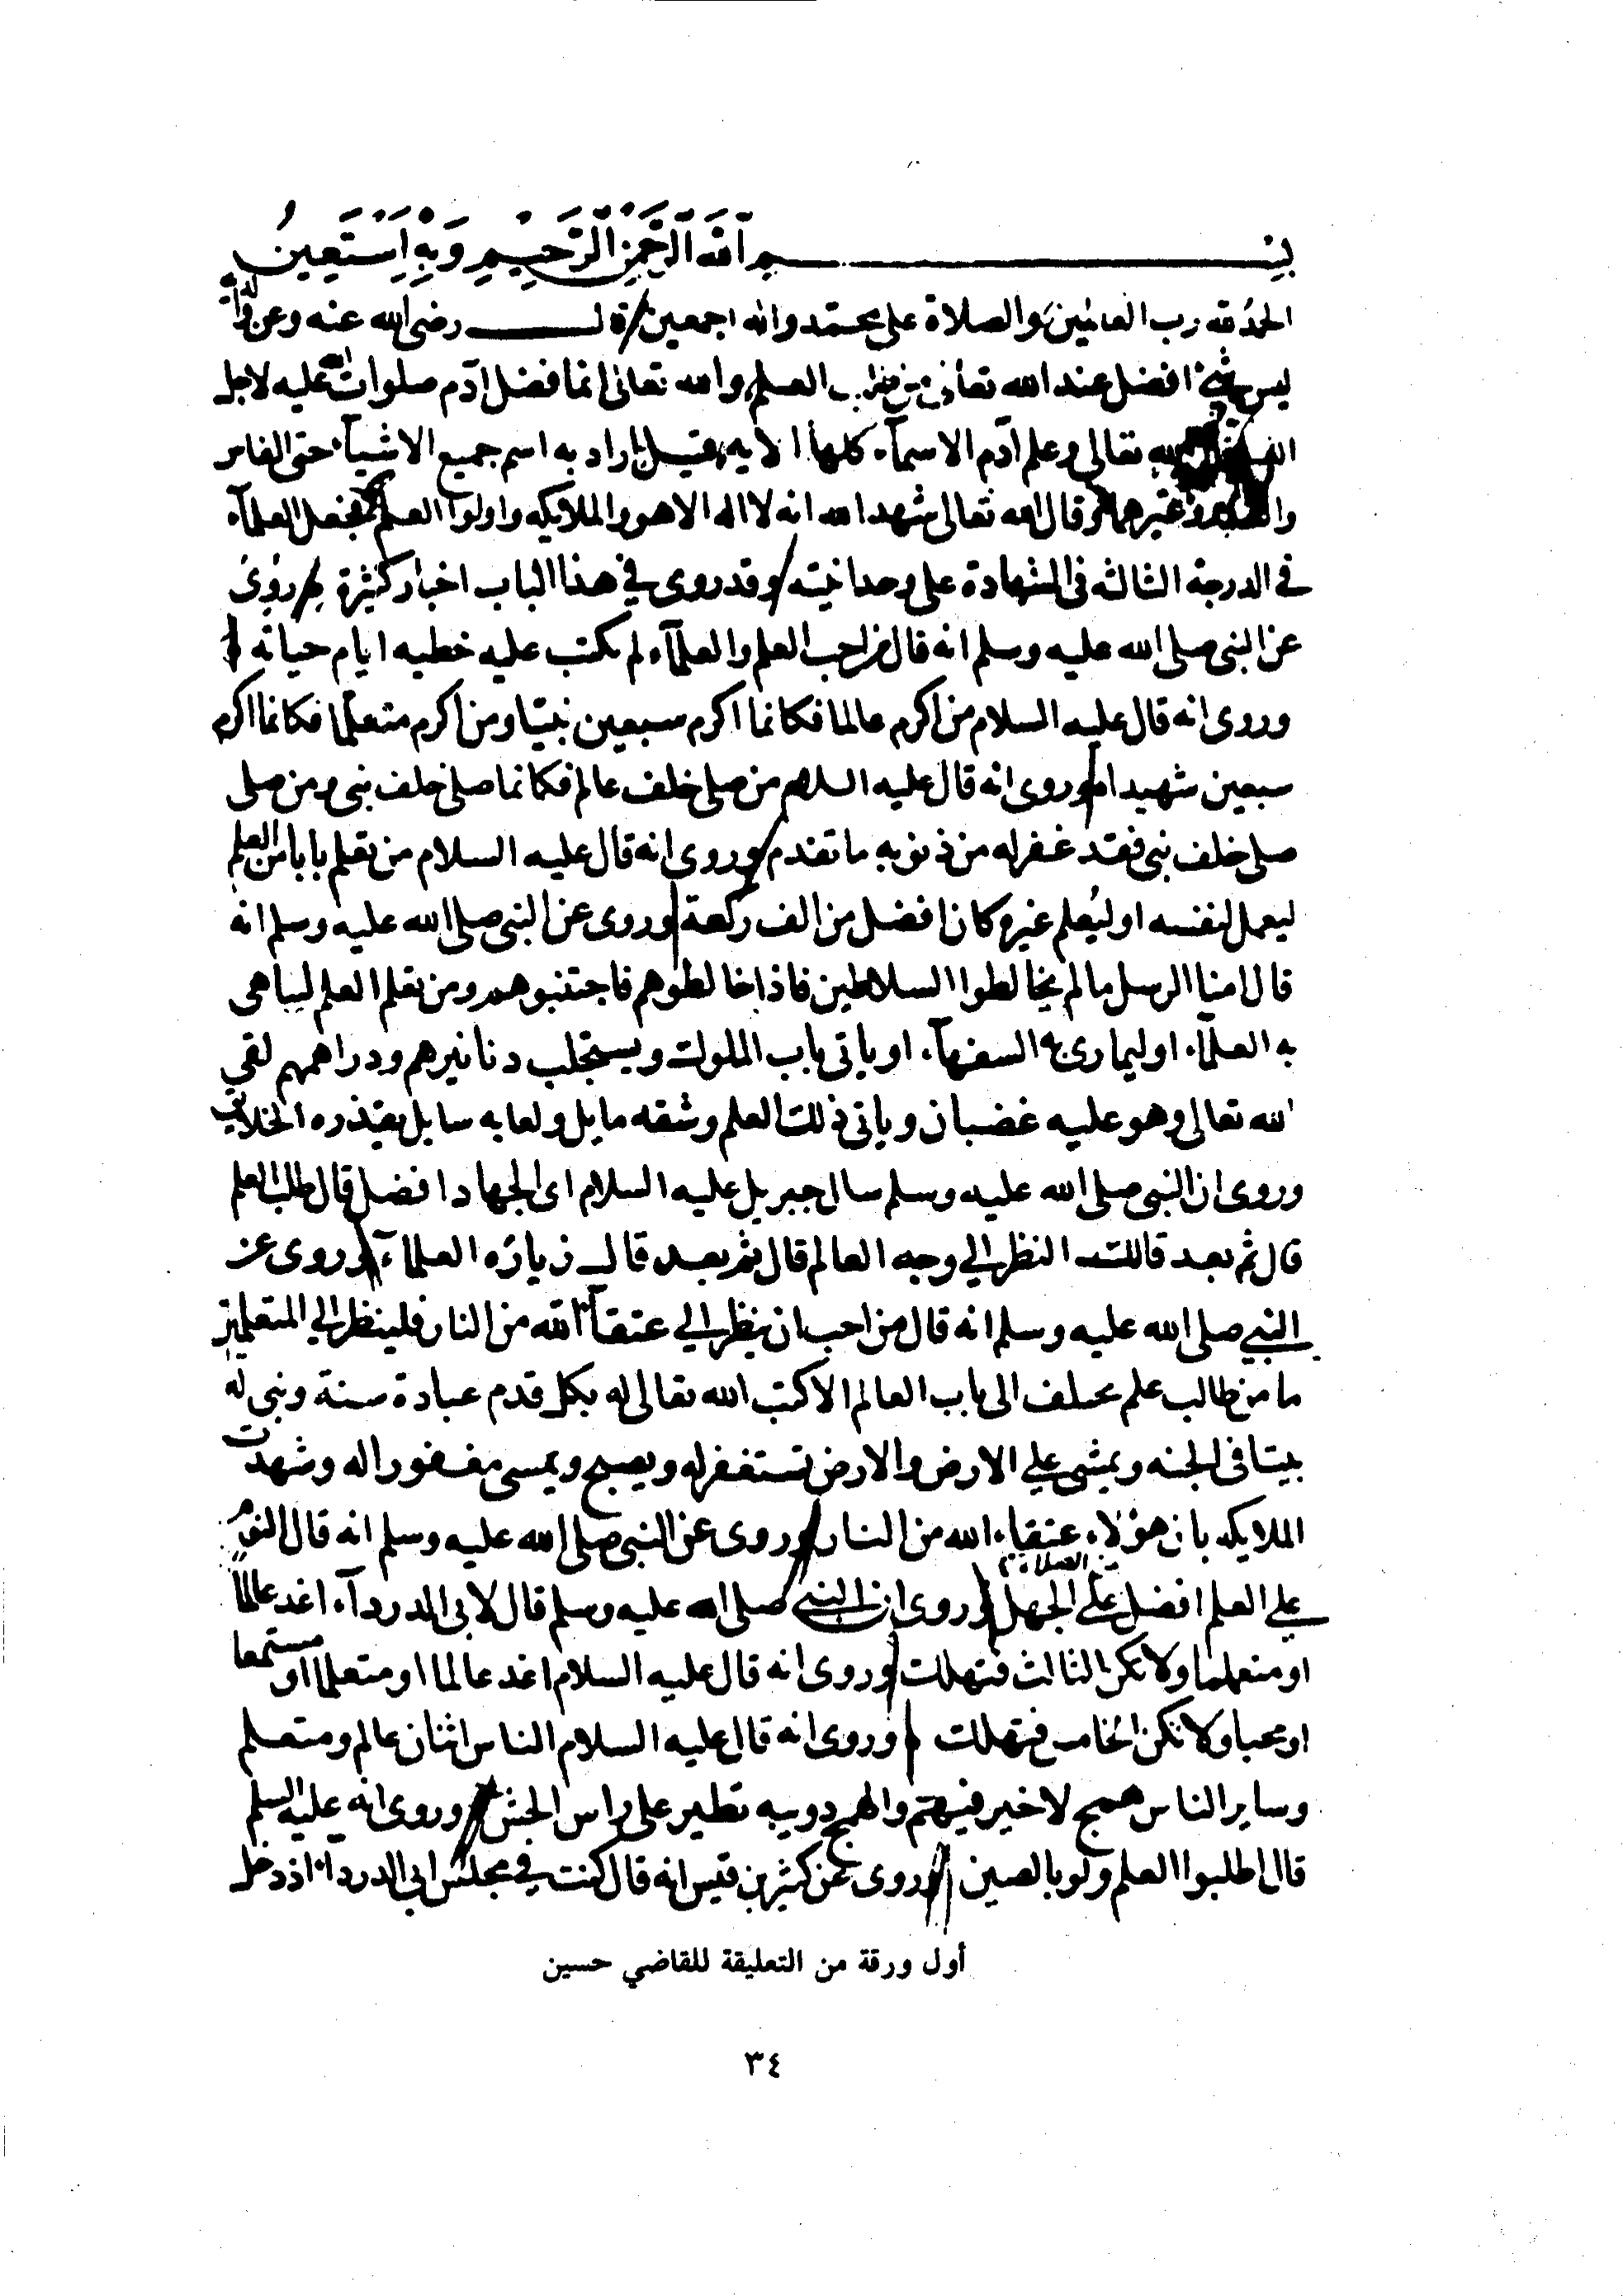 بسم الله الرحمن الرحيم وبه استعين
الحمد لله رب العالمين والصلاة على محمد واله اجمعين قال رضى الله عنه وعن والديه
ليس شئ افضل عند الله تعالى من طلب العلم والله تعالى انما فضل آدم صلوات الله عليه لاجل
تعالى وعلم آدم الاسماء كلها الايه فقيل اراد به اسم جميع الاشياء حتى الفاس
وغيرهما وقال الله تعالى شهد الله انه لا اله الا هو والملايكه واولوا العلم فجعل العلمآء
في الدرجة الثالثه فى الشهادة على وحدانيته وقد روى في هذا الباب اخبار كثيرة روى
عن النبى صلى الله عليه وسلم انه قال من احب العلم والعلمآء لم يكتب عليه خطيه ايام حياته
وروى انه قال عليه السلام من اكرم عالما فكانما اكرم سبعين نبيا ومن اكرم متعلما فكانما اكرم
سبعين شهيدا وروى انه قال عليه السلام من صلى خلف عالم فكانما صلى خلف نبى ومن صلى
صلى خلف نبى فقد غفر له من ذنوبه ما تقدم وروى انه قال عليه السلام من تعلم بابا من العلم
ليعمل لنفسه او ليُعلم غيره كان افضل من الف ركعة وروى عن النبى صلى الله عليه وسلم انه
قال امنا الرسل ما لم يخالطوا السلاطين فاذا خالطوهم فاجتنبوهم ومن تعلم العلم ليباهى
به العلمآء او ليمارى به السفهآء او ياتى باب الملوك ويستجلب دنانيرهم ودراهمهم لقي
الله تعالى وهو عليه غضبان وياتى ذلك العلم وشقه مايل ولعابه سايل يقذره الخلايق
وروى ان النبى صلى الله عليه وسلم سال جبريل عليه السلام اى الجهاد افضل قال طلب العلم
قال ثم بعد قال النظر الي وجه العالم قال ثم بعد قال زيارة العلمآء وروى عن
النبي صلى الله عليه وسلم انه قال من احب ان ينظر الي عتقآء الله من النار فلينظر الي المتعلمين
ما من طالب علم يختلف الى باب العالم الا كتب الله تعالى له بكل قدم عبادة سنة وبنى له
بيتا فى الجنه ويمشى علي الارض والارض تستغفر له ويصبح ويمسى مغفورا له وشهدت
الملايكه بان هؤلاء عتقاء الله من النار وروى عن النبى صلى الله عليه وسلم انه قال النوم
علي العلم افضل من الصلاة علي الجهل وروى ان النبي صلى الله عليه وسلم قال لابى الدردآء اغد عالما
او متعلما ولا تكن الثالث فتهلك وروى انه قال عليه السلام اغد عالما او متعلما او مستمعا
او محبا ولا تكن الخامس فتهلك وروى انه قال عليه السلام الناس اثنان عالم ومتعلم
وساير الناس همج لا خير فيهم والهمج دويبه تطير على راس الحش وروى انه عليه السلم
قال اطلبوا العلم ولو بالصين وروى عن كثير بن قيس انه قال كنت في مجلس ابى الدرداء اذ دخل
أول ورقة من التعليقة للقاضي حسين
٣٤